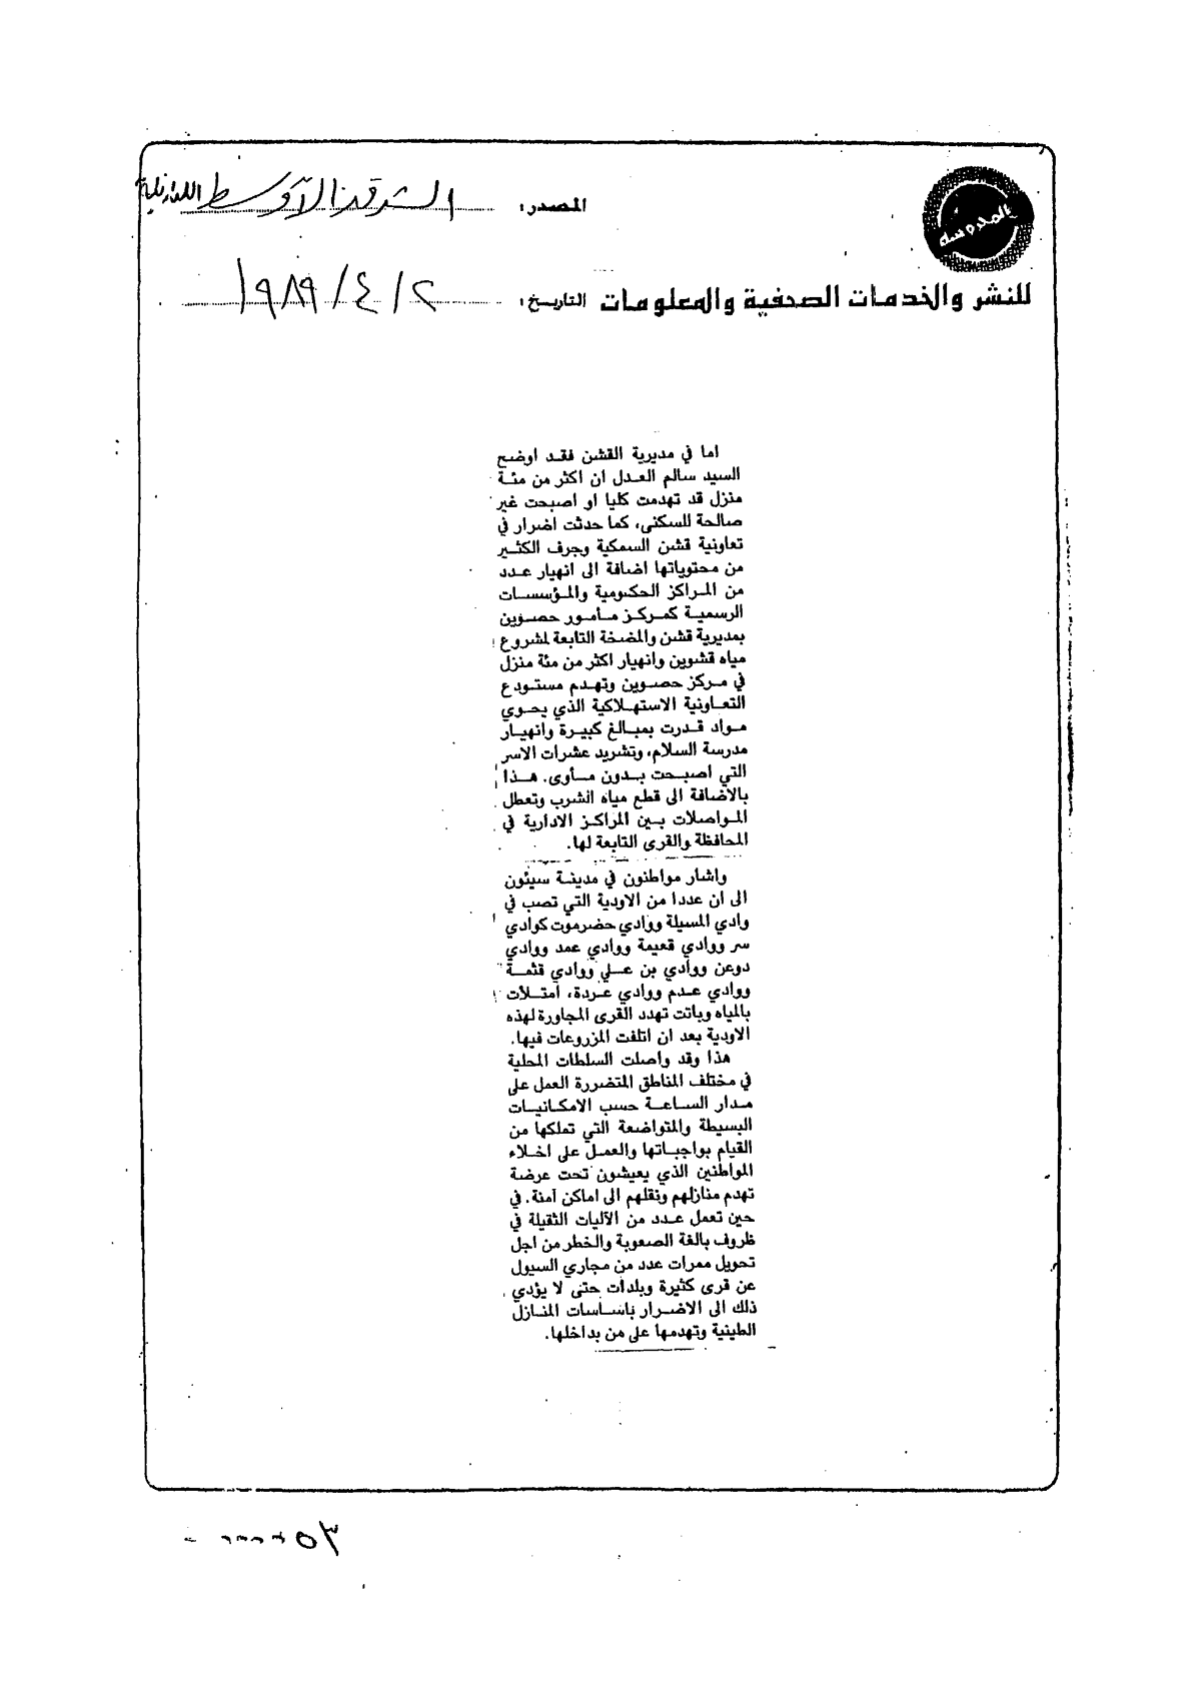 المصدر: الشرق الأوسط اللندنية
المدروسه
للنشر والخدمات الصحفية والمعلومات
التاريخ: ٢ / ٤ / ١٩٨٩
اما في مديرية القشن فقد اوضح
السيد سالم العدل ان اكثر من مئة
منزل قد تهدمت كليا او اصبحت غير
صالحة للسكنى، كما حدثت اضرار في
تعاونية قشن السمكية وجرف الكثير
من محتوياتها اضافة الى انهيار عدد
من المراكز الحكومية والمؤسسات
الرسمية كمركز مأمور حصوين
بمديرية قشن والمضخة التابعة لمشروع
مياه قشوين وانهيار اكثر من مئة منزل
في مركز حصوين وتهدم مستودع
التعاونية الاستهلاكية الذي يحوي
مواد قدرت بمبالغ كبيرة وانهيار
مدرسة السلام، وتشريد عشرات الاسر
التي اصبحت بدون مأوى. هذا
بالاضافة الى قطع مياه الشرب وتعطل
المواصلات بين المراكز الادارية في
المحافظة والقرى التابعة لها.
واشار مواطنون في مدينة سيئون
الى ان عددا من الاودية التي تصب في
وادي المسيلة ووادي حضرموت كوادي
سر ووادي قعيمة ووادي عمد ووادي
دوعن ووادي بن علي ووادي قثمة
ووادي عدم ووادي عردة، امتلأت
بالمياه وباتت تهدد القرى المجاورة لهذه
الاودية بعد ان اتلفت المزروعات فيها.
هذا وقد واصلت السلطات المحلية
في مختلف المناطق المتضررة العمل على
مدار الساعة حسب الامكانيات
البسيطة والمتواضعة التي تملكها من
القيام بواجباتها والعمل على اخلاء
المواطنين الذي يعيشون تحت عرضة
تهدم منازلهم ونقلهم الى اماكن آمنة. في
حين تعمل عدد من الآليات الثقيلة في
ظروف بالغة الصعوبة والخطر من اجل
تحويل ممرات عدد من مجاري السيول
عن قرى كثيرة وبلدات حتى لا يؤدي
ذلك الى الاضرار باساسات المنازل
الطينية وتهدمها على من بداخلها.